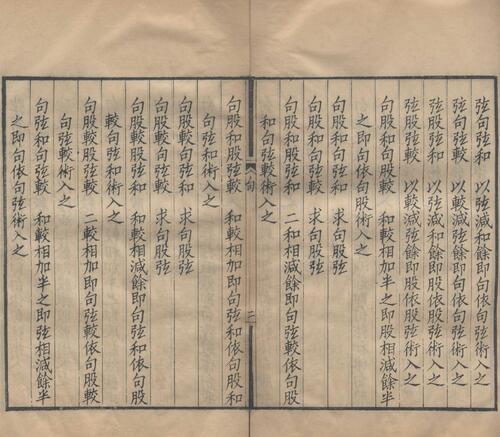 弦句弦和 以弦減和餘即句依句弦術入之
弦句弦較 以較減弦餘即句依句弦術入之
弦股弦和 以弦減和餘即股依股弦術入之
弦股弦較 以較減弦餘即股依股弦術入之
句股和句股較 和較相加半之即股相減餘半
之即句依句股術入之
句股和句弦和 求句股弦
句股和句弦較 求句股弦
句股和股弦和 二和相減餘即句弦較依句股
和句弦較術入之
句股和股弦較 和較相加即句弦和依句股和
句弦和術入之
句股較句弦和 求句股弦
句股較句弦較 求句股弦
句股較股弦和 和較相減餘即句弦和依句股
較句弦和術入之
句股較股弦較 二較相加即句弦較依句股較
句弦較術入之
句弦和句弦較 和較相加半之即弦相減餘半
之即句依句弦術入之